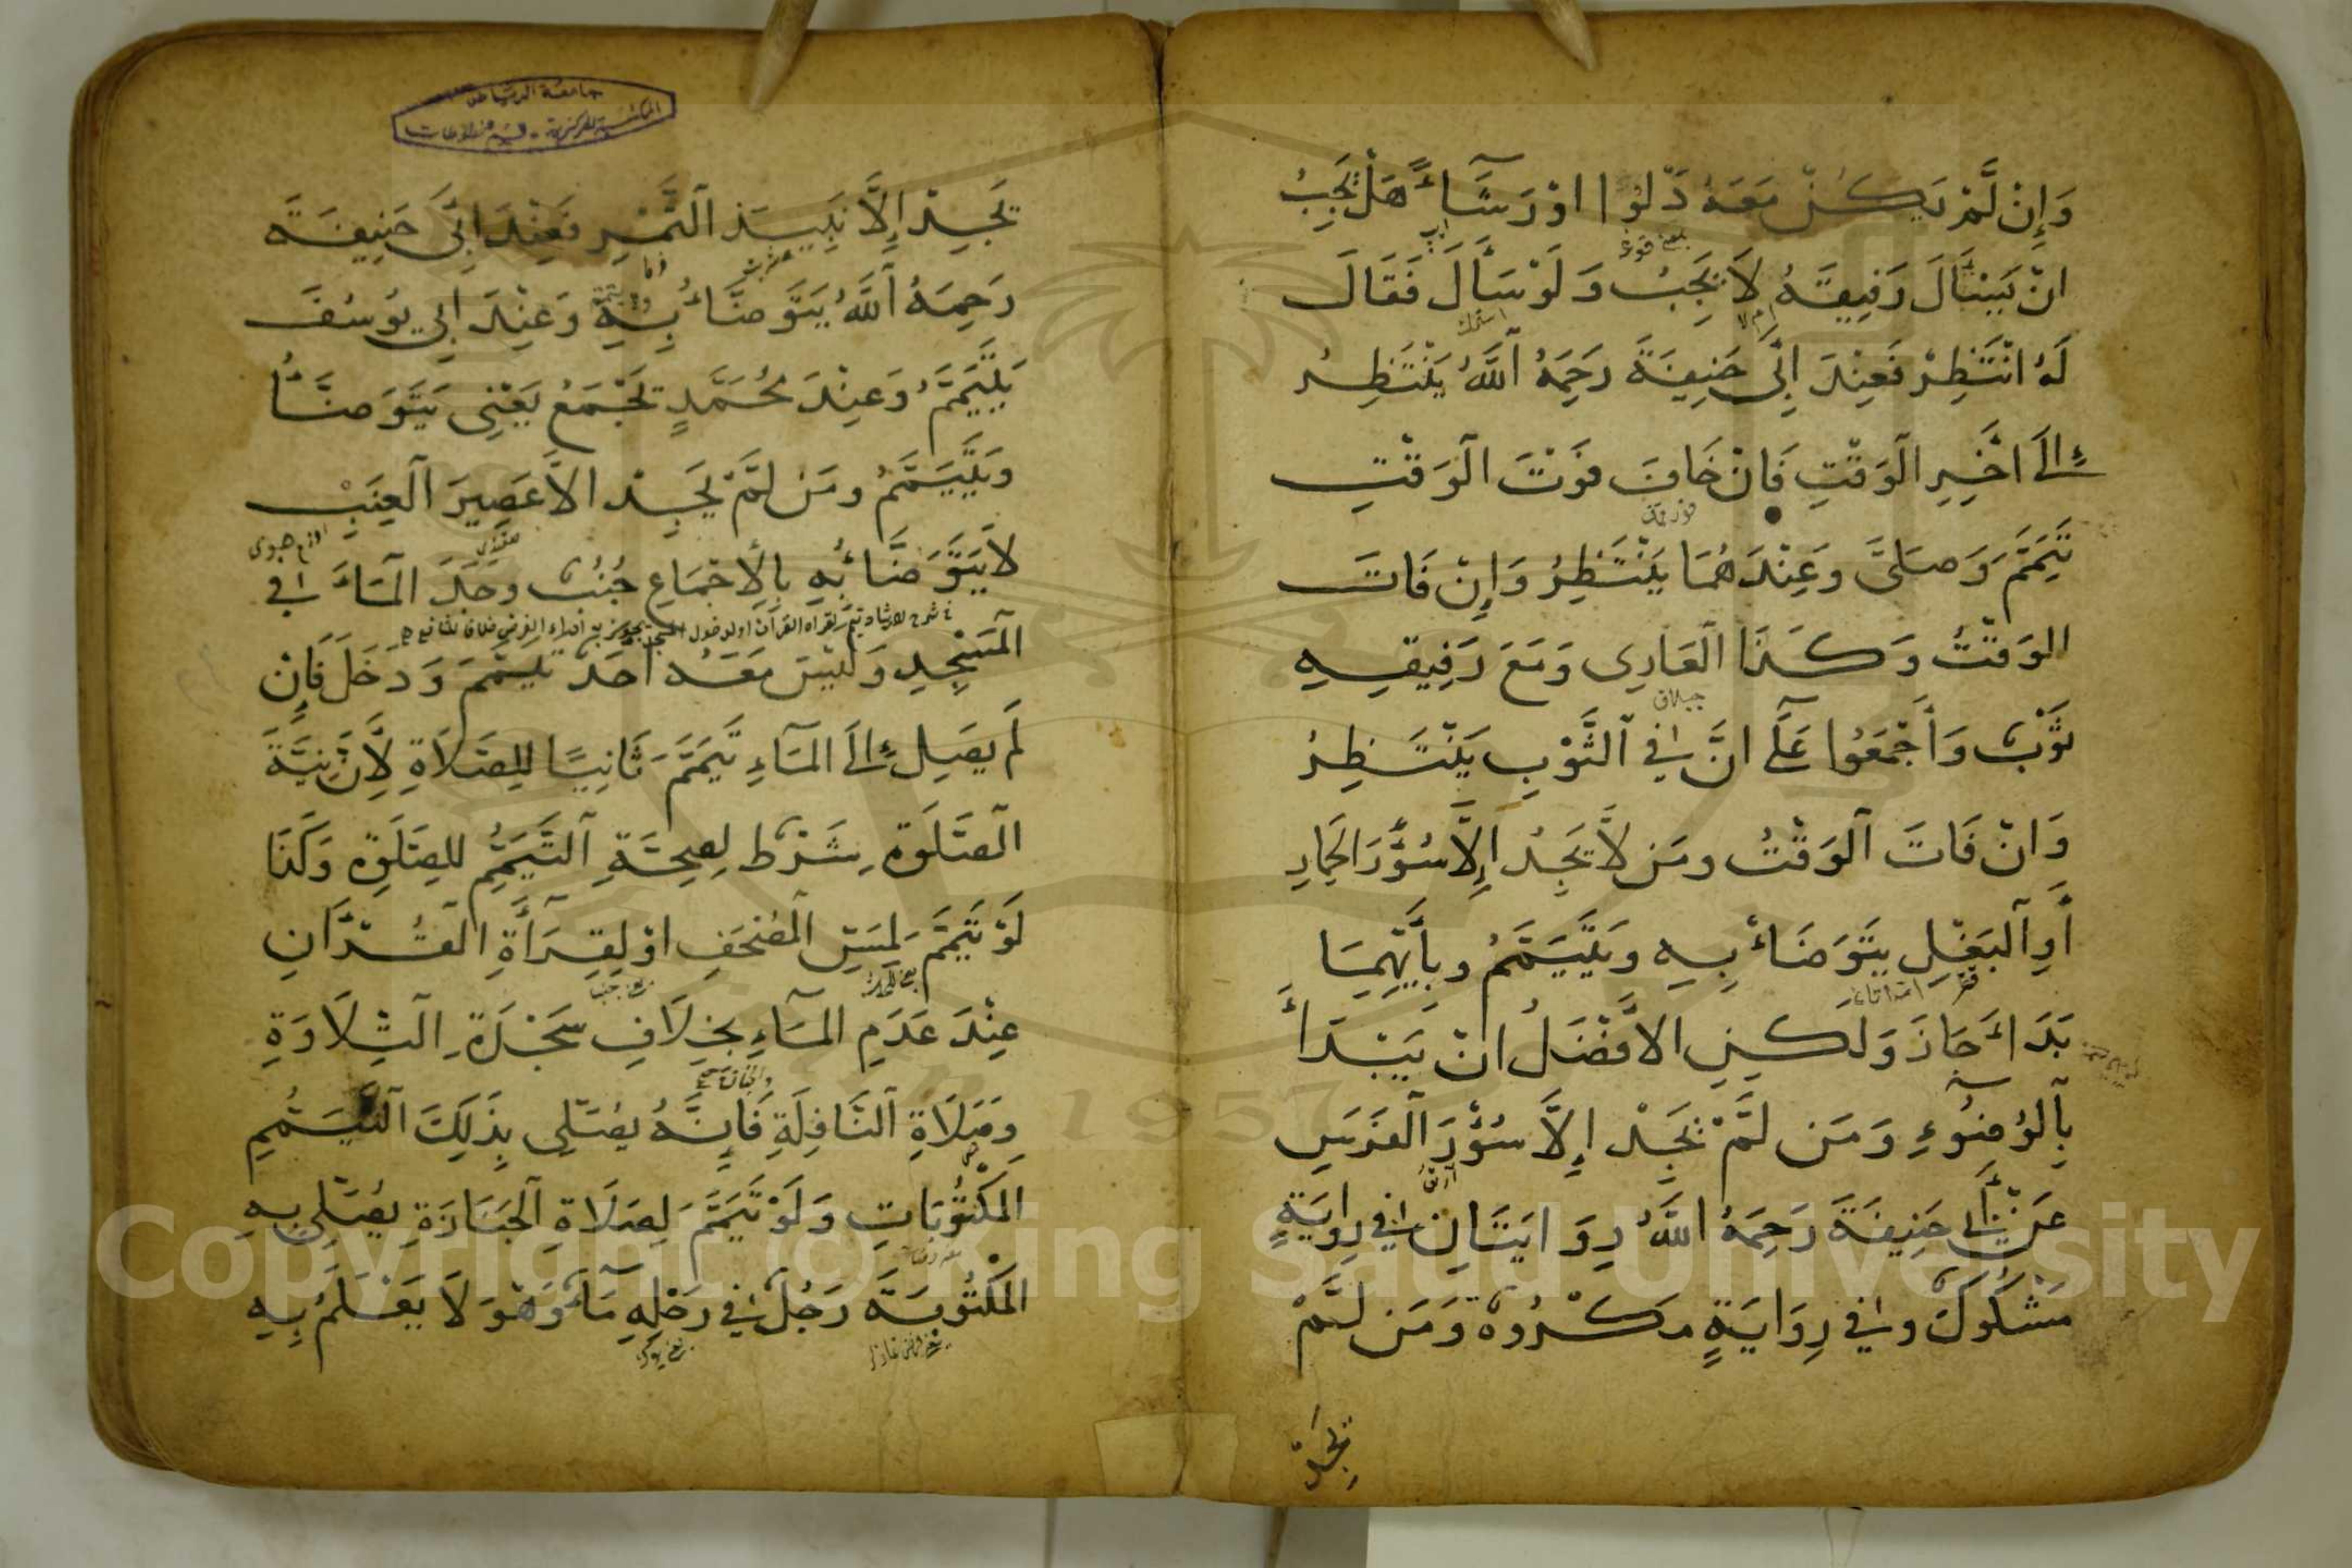 وَإِنْ لَّمْ يَكُنْ مَعَهُ دَلْوًا اوْ رَشَآءً هَلْ يَجِبُ
انْ يَسْأَلَ رَفِيقَهُ لَا يَجِبُ وَلَوْ سَأَلَ فَقَالَ
لَهُ انْتَظِرْ فَعِنْدَ ابِي حَنِيفَةَ رَحِمَهُ ٱللَّهُ يَنْتَظِرُ
إِلَى اخِرِ الْوَقْتِ فَانْ خَافَ فَوْتَ الْوَقْتِ
تَيَمَّمَ وَصَلَّى وَعِنْدَهُمَا يَنْتَظِرُ وَإِنْ فَاتَ
الوَقْتُ وَكَذَا الْعَارِى وَمَعَ رَفِيقِهِ
ثَوْبٌ وَأَجْمَعُوا عَلَى انَّ فِي ٱلثَّوْبِ يَنْتَظِرُ
وَانْ فَاتَ ٱلْوَقْتُ ومَن لَّا يَجِدُ اِلَّا سُؤْرَ الْحِمَارِ
أَوِ ٱلْبَغْلِ يَتَوَضَاءُ بِهِ وَيَتَيَمَّمُ وبِأَيِّهِمَا
بَدَاءَ جَازَ وَلَكِنِ الافْضَلُ انْ يَبْدَأَ
بِٱلْوُضُوٓءِ وَمَن لَّمْ يَجِدْ إِلَّا سُؤْرَ ٱلْفَرَسِ
عَنْ أَبِي حَنِيفَةَ رَحِمَهُ اللَّهُ رِوَايَتَانِ فِي رِوَايَةٍ
مَشْكُوكٌ وفِي رِوَايَةٍ مَكْرُوهٌ وَمَن لَّمْ
يَجِدْ
جامعة الرياض
المكتبة المركزية - قسم المخطوطات
يَجِدْ إِلَّا نَبِيذَ ٱلتَّمْرِ فَعِنْدَ ابِي حَنِيفَةَ
رَحِمَهُ ٱللَّهُ يَتَوَضَّاءُ بِهِ وَعِنْدَ ابِي يُوسُفَ
يَتَيَمَّمُ وَعِنْدَ مُحَمَّدٍ يَجْمَعُ يَعْنِى يَتَوَضَّأُ
وَيَتَيَمَّمُ ومَن لَّمْ يَجِدْ الَّا عَصِيرَ ٱلْعِنَبِ
لَا يَتَوَضَّاءُ بِهِ بِالْاِجْمَاعِ جُنُبٌ وجَدَ الْمَاءَ فِي
الْمَسْجِدِ وَلَيْسَ مَعَهُ أَحَدٌ تَيَمَّمَ وَدَخَلَ فَإِنْ
لَم يَصِلْ إِلَى الْمَاءِ تَيَمَّمَ ثَانِيًا لِلصَّلَاةِ لِأَنَّ نِيَّةَ
الصَّلَوةِ شَرْطٌ لِصِحَّةِ ٱلتَّيَمُّمِ لِلصَّلَوةِ وَكَذَا
لَوْ تَيَمَّمَ لِمَسِّ ٱلْمُصْحَفِ اوْ لِقِرَأَةِ الْقُرْآنِ
عِنْدَ عَدَمِ الْمَاءِ بِخِلَافِ سَجْدَةِ ٱلتِّلَاوَةِ
وصَلَاةِ ٱلنَّافِلَةِ فَإِنَّهُ يُصَلِّى بِذَلِكَ ٱلتَّيَمُّمِ
المَكْتُوبَاتِ وَلَوْ تَيَمَّمَ لِصَلَاةِ ٱلْجَنَازَةِ يُصَلِّى بِهِ
المَكْتُوبَةَ رَجُلٌ فِي رَحْلِهِ مَآءٌ وَهْوَ لَا يَعْلَمُ بِهِ
Copyright © King Saud University
1957